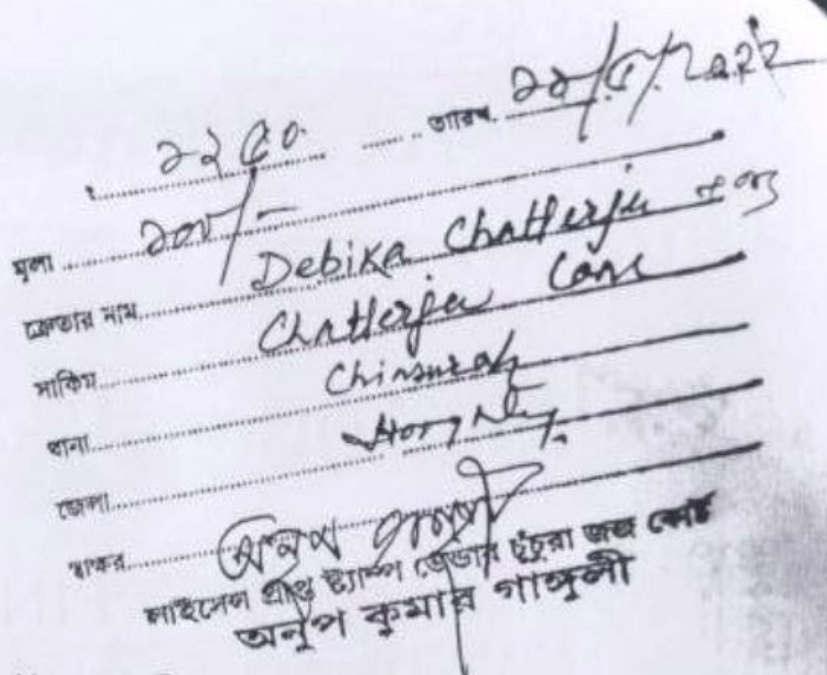 ২২৫০ তারিখ ২৯/৫/2022
মূল্য ১০০/-
ক্রেতার নাম Debika Chatterjee
সাকিম Chatterjee Lane
থানা Chinsurah
জেলা Hooghly
স্বাক্ষর অনুপ
লাইসেন্স প্রাপ্ত ষ্ট্যাম্প ভেন্ডার চুঁচুরা জজ কোর্ট
অনুপ কুমার গাঙ্গুলী